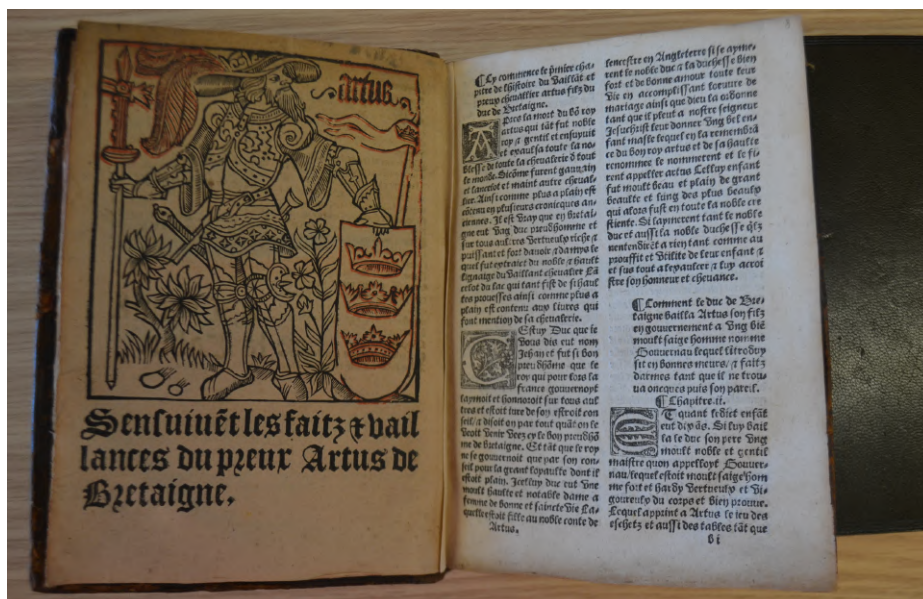 artus.
Sensuiuẽt les faitz ⁊ vail
lances du preux Artus de
Bretaigne.
¶ Cy commence le p̃mier cha-
pitre de lhistoire du vaillãt et
preux cheuallier artus filz du
duc de Bretaigne.
APres la mort du bõ roy
artus qui tãt fut noble
roy ⁊ gentil et ensuyuit
et exaulsa toute la no-
blesse de toute la cheualerie d̃ tout
le monde. Sicõme furent gauuain
et lancelot et maint autre cheual-
lier. Ainsi comme plus a plain est
cõtenu en plusieurs croniques an-
ciennes. Il est vray que en bretai-
gne eut vng duc preudhomme et
sur tous autres vertueulx riche ⁊
puissant et fort dauoir ⁊ damys le
quel fut extrait du noble ⁊ hault
lignaige du vaillant cheualier Lã
celot du lac qui tant fist de si haul
tes prouesses ainsi comme plus a
plain est contenu aux liures qui
font mention de sa cheualerie.
CEstuy Duc que ie
vous dis eut nom
Jehan et fut si bon
preudhõme que le
roy qui pour lors la
france gouuernoyt
laymoit et honnoroit sur tous aut
tres et estoit iure de son estroit con
seil/ ⁊ disoit on par tout quãt on le
veoit venir Veez cy le bon preudhõ
me de bretaigne. Et tãt que le roy
ne se gouuernoit que par son con-
seil pour la grant loyaulte dont il
estoit plain. Icelluy duc eut vne
moult haulte et notable dame a
femme de bonne et saincte vie La-
quelle estoit fille au noble conte de
Artus.
lencestre en Angleterre si se ayme-
rent le noble duc ⁊ la duchesse bien
fort et de bonne amour toute leur
vie en accomplissant lordre de
mariage ainsi que dieu la ordonne
tant que il pleut a nostre seigneur
Jesuchrist leur donner vng bel en-
fant masle lequel en la remembrã
ce du bon roy artus et de sa haulte
renommee le nommerent et le fi-
rent appeller artus Celluy enfant
fut moult beau et plain de grant
beaulte et lung des plus beaulx
qui alors fust en toute la noble cre
stiente. Si laymerent tant le noble
duc et aussi la noble duchesse q̃lz
nentendirẽt a rien tant comme au
prouffit et vtilite de leur enfant ⁊
et sus tout a lexaulcer ⁊ luy acroi
stre son honneur et cheuance.
¶ Comment le duc de Bre-
taigne bailla Artus son filz
en gouuernement a vng biẽ
moult saige homme nomme
Gouuernau lequel lĩtroduy
sit en bonnes meurs/ ⁊ faitz
darmes tant que il ne trou-
ua oncques puis son pareil.
¶ Chapitre.ii.
ET quant ledict enfãt
eut dix ãs. Si luy bail
la le duc son pere vng
moult noble et gentil
maistre quon appelloyt Gouuer-
nau/lequel estoit moult saige hom
me fort et hardy vertueulx et vi-
goureulx du corps et bien prouue.
Lequel apprint a Artus le ieu des
eschetz et aussi des tables tãt que
b i